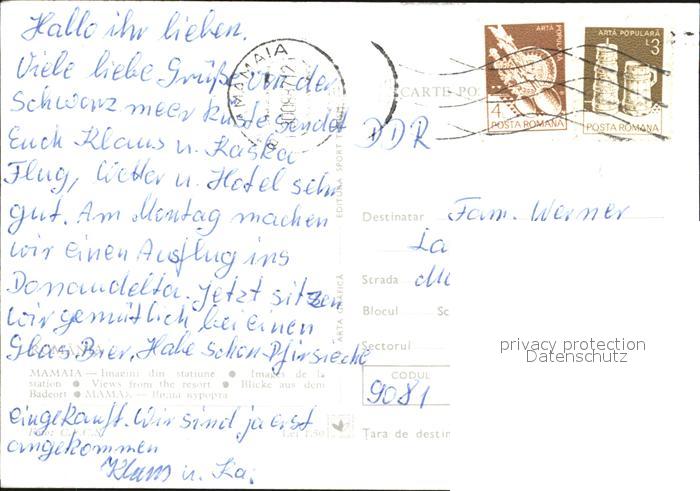 Hallo ihr lieben.
Viele liebe Grüße von der
Schwarzmeerküste sendet
Euch Klaus u. Kaska
Flug, Wetter u. Hotel sehr
gut. Am Montag machen
wir einen Ausflug ins
Donaudelta. Jetzt sitzen
wir gemütlich bei einen
Glas Bier. Habe schon Pfirsiche
MAMAIA — Imagini din stațiune ● Images de la
station ● Views from the resort ● Blicke aus dem
Badeort ● МАМАЯ — Виды курорта
eingekauft. Wir sind ja erst
angekommen
Lei 1.50
Klaus u. Ka
MAMAIA
EDITURA SPORT
ARTA GRAFICĂ
CARTE PO
ARTĂ POPULARĂ
4
POSTA ROMANA
ARTĂ POPULARĂ
L3
POSTA ROMANA
DDR
Destinatar Fam. Werner
La
Strada
Blocul Sc
Sectorul
CODUL
9081
Țara de destin
privacy protection
Datenschutz